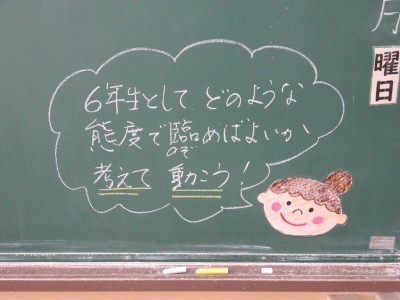 6年生として どのような
態度で臨めばよいか
のぞ
考えて 動こう!
曜日